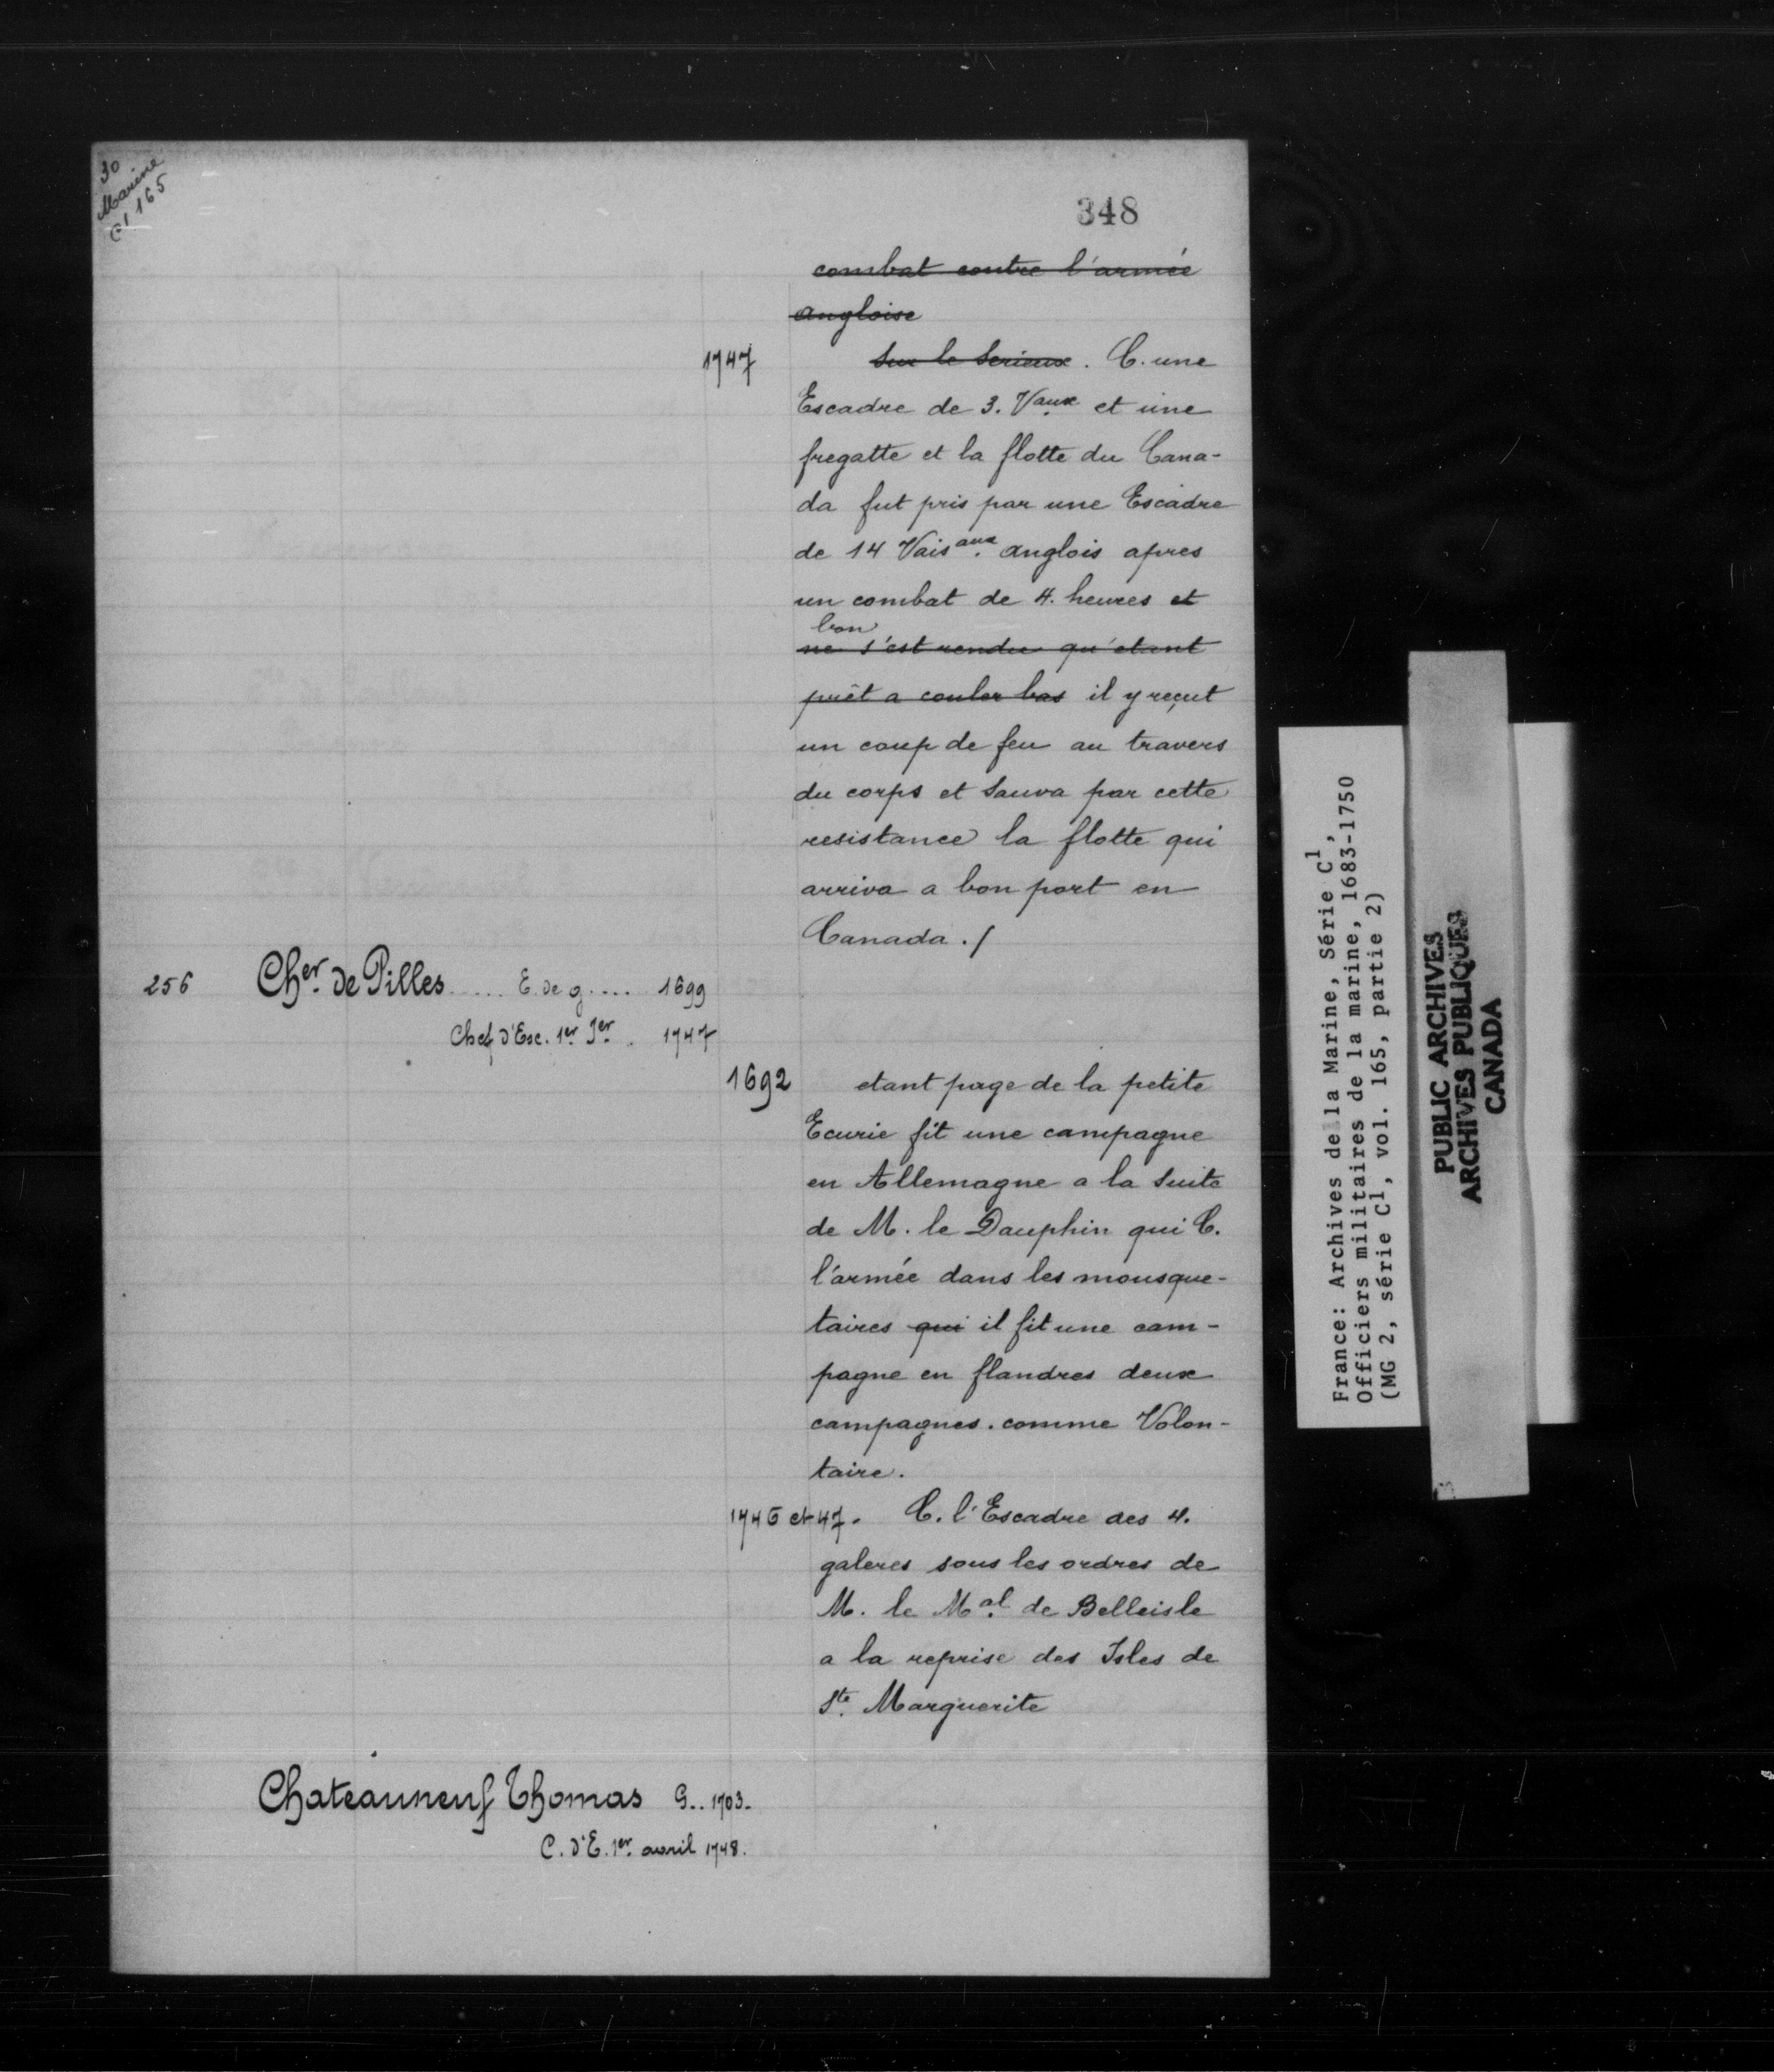 30
Marine
C1 165
348
combat contre l'armée
angloise
1747 Sur le Serieux. C. une
Escadre de 3. Vaux et une
fregatte et la flotte du Cana-
da fut pris par une Escadre
de 14 Vaisaux anglois apres
un combat de 4. heures et
bon
ne s'est rendu qu'etant
prêt a couler bas il y reçut
un coup de feu au travers
du corps et Sauva par cette
resistance la flotte qui
arriva a bon port en
Canada ./
256 Cher. de Pilles ..... E. de g .... 1699
Chef d'Esc. 1er Jer. . 1747
1692 etant page de la petite
Ecurie fit une campagne
en Allemagne a la Suite
de M. le Dauphin qui C.
l'armée dans les mousque-
taires qui il fit une cam-
pagne en flandres deux
campagnes. comme Volon-
taire.
1746 et 47. C. l'Escadre des 4.
galeres sous les ordres de
M. le Mal. de Belleisle
a la reprise des Isles de
Ste. Marguerite
Chateauneuf Thomas G.. 1703.
C. d'E. 1er. avril 1748.
France: Archives de la Marine, Série C1,
Officiers militaires de la marine, 1683-1750
(MG 2, série C1, vol. 165, partie 2)
PUBLIC ARCHIVES
ARCHIVES PUBLIQUES
CANADA